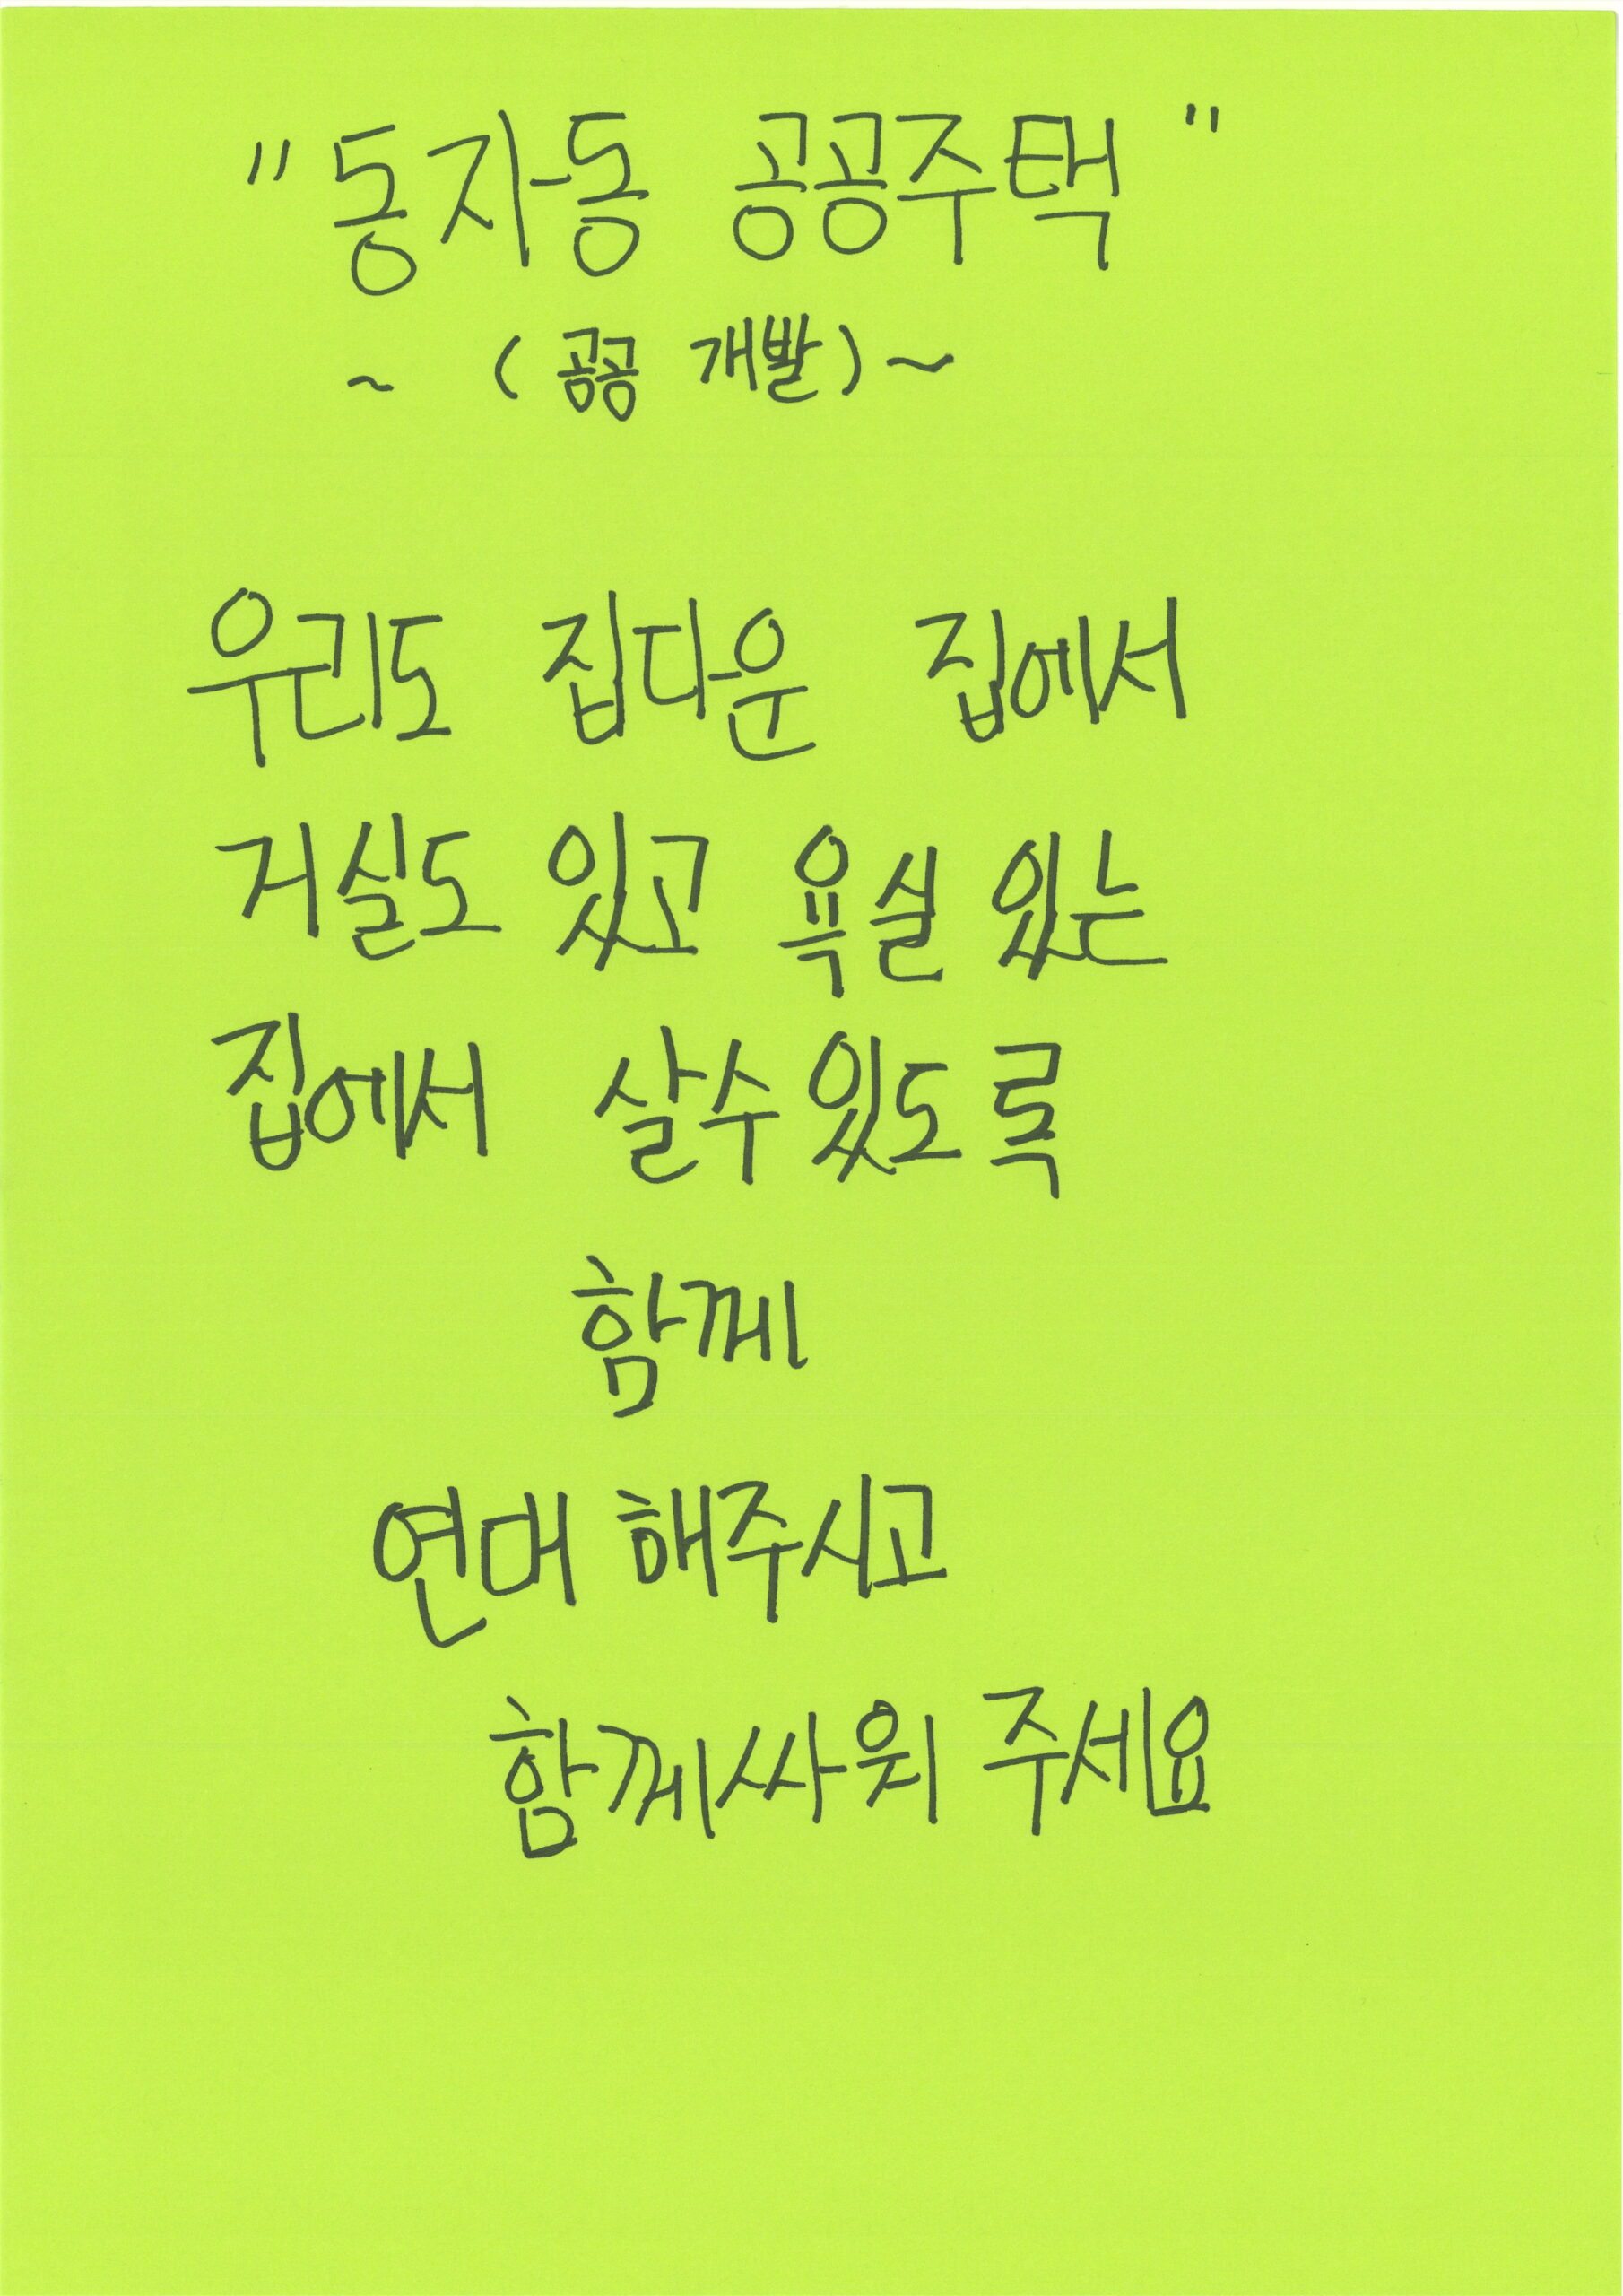 "동자동 공공주택"
~ (공공 개발) ~
우리도 집다운 집에서
거실도 있고 욕실 있는
집에서 살수있도록
함께
연대 해주시고
함께싸워 주세요